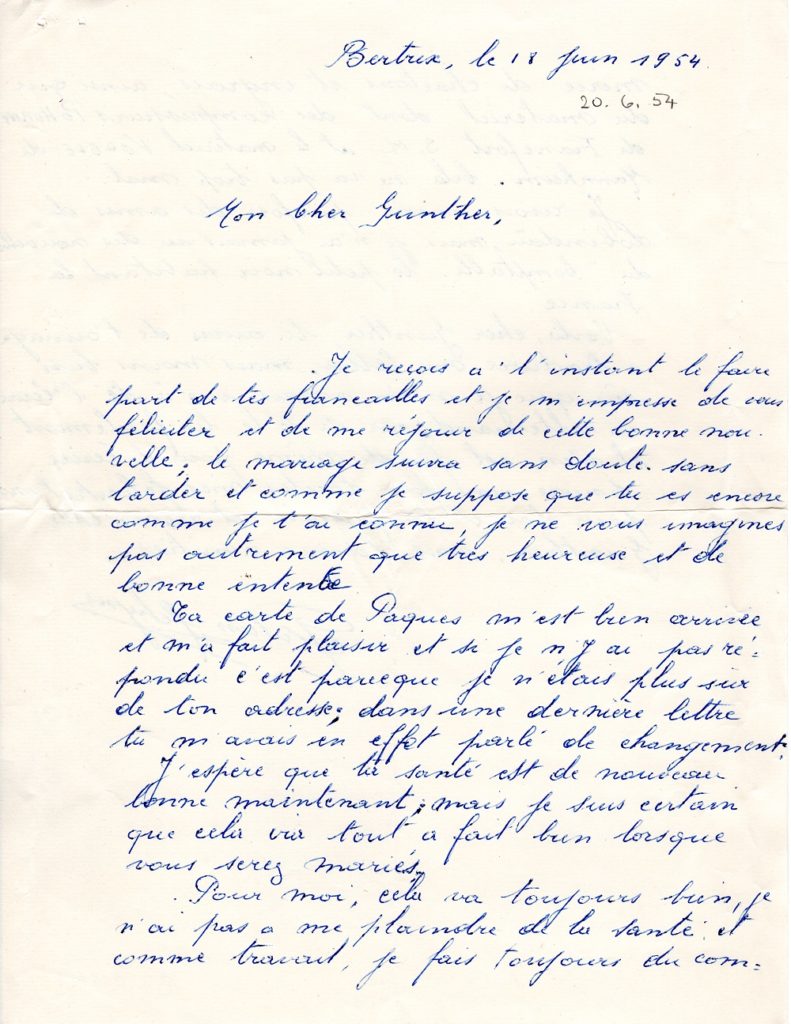 Bertrix, le 18 juin 1954.
20. 6. 54
Mon Cher Gunther,
Je reçois a l'instant le faire
part de tes fiancailles et je m'empresse de vous
féliciter et de me réjouir de cette bonne nou-
velle; le mariage suivra sans doute sans
tarder et comme je suppose que tu es encore
comme je t'ai connu, je ne vous imagines
pas autrement que très heureuse et de
bonne entente
Ta carte de Paques m'est bien arrivée
et m'a fait plaisir et si je n'y ai pas ré-
pondu c'est parceque je n'étais plus sur
de ton adresse; dans une dernière lettre
tu m'avais en effet parlé de changement.
J'espère que ta santé est de nouveau
bonne maintenant; mais je suis certain
que cela ira tout a fait bien lorsque
vous serez mariés.
Pour moi, cela va toujours bien, je
n'ai pas a me plaindre de la santé et
comme travail, je fais toujours du com-